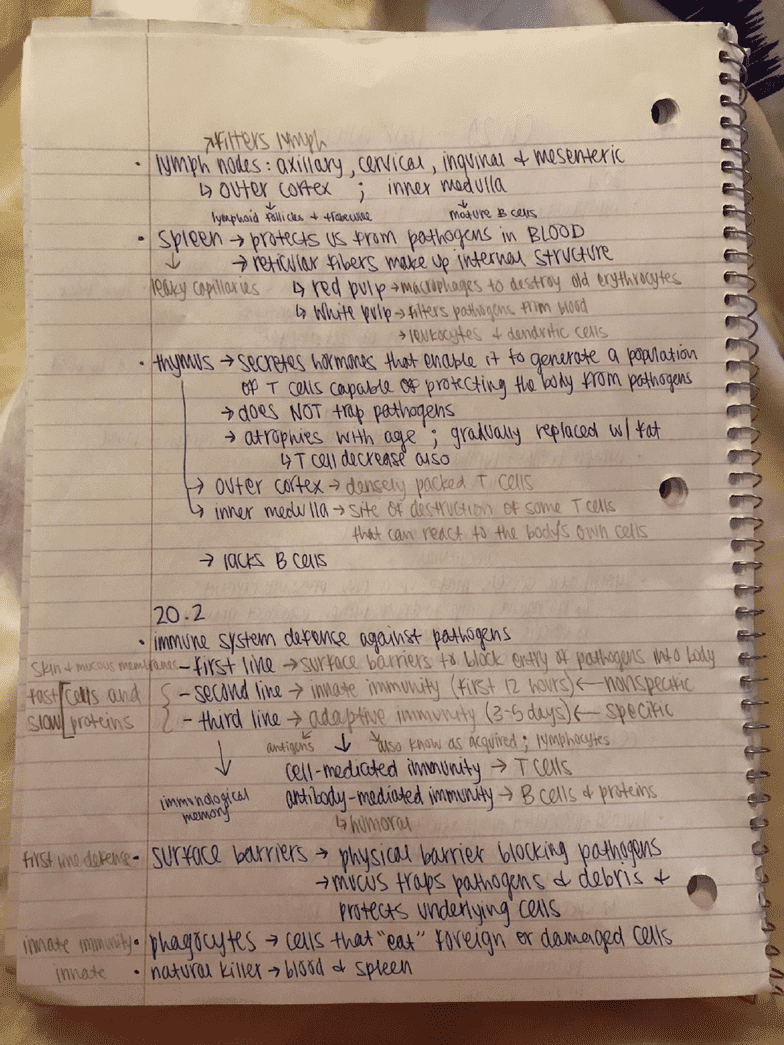 ↗filters lymph
• lymph nodes: axillary, cervical, inguinal & mesenteric
↳ outer cortex ; inner medulla
lymphoid follicles & trabeculae mature B cells
• spleen → protects us from pathogens in BLOOD
→ reticular fibers make up internal structure
leaky capillaries ↳ red pulp → macrophages to destroy old erythrocytes
↳ white pulp → filters pathogens from blood
→ leukocytes & dendritic cells
• thymus → secretes hormones that enable it to generate a population
of T cells capable of protecting the body from pathogens
→ does NOT trap pathogens
→ atrophies with age ; gradually replaced w/ fat
↳ T cell decrease also
→ outer cortex → densely packed T cells
↳ inner medulla → site of destruction of some T cells
that can react to the body's own cells
→ lacks B cells
20.2
• immune system defense against pathogens
skin & mucous membranes – first line → surface barriers to block entry of pathogens into body
fast [cells and { – second line → innate immunity (first 12 hours) ← nonspecific
slow [proteins { – third line → adaptive immunity (3-5 days) ← specific
antigens ↓ also know as acquired ; lymphocytes
cell-mediated immunity → T cells
immunological memory antibody-mediated immunity → B cells & proteins
↳ humoral
first line defense • surface barriers → physical barrier blocking pathogens
→ mucus traps pathogens & debris &
protects underlying cells
innate immunity • phagocytes → cells that "eat" foreign or damaged cells
innate • natural killer → blood & spleen